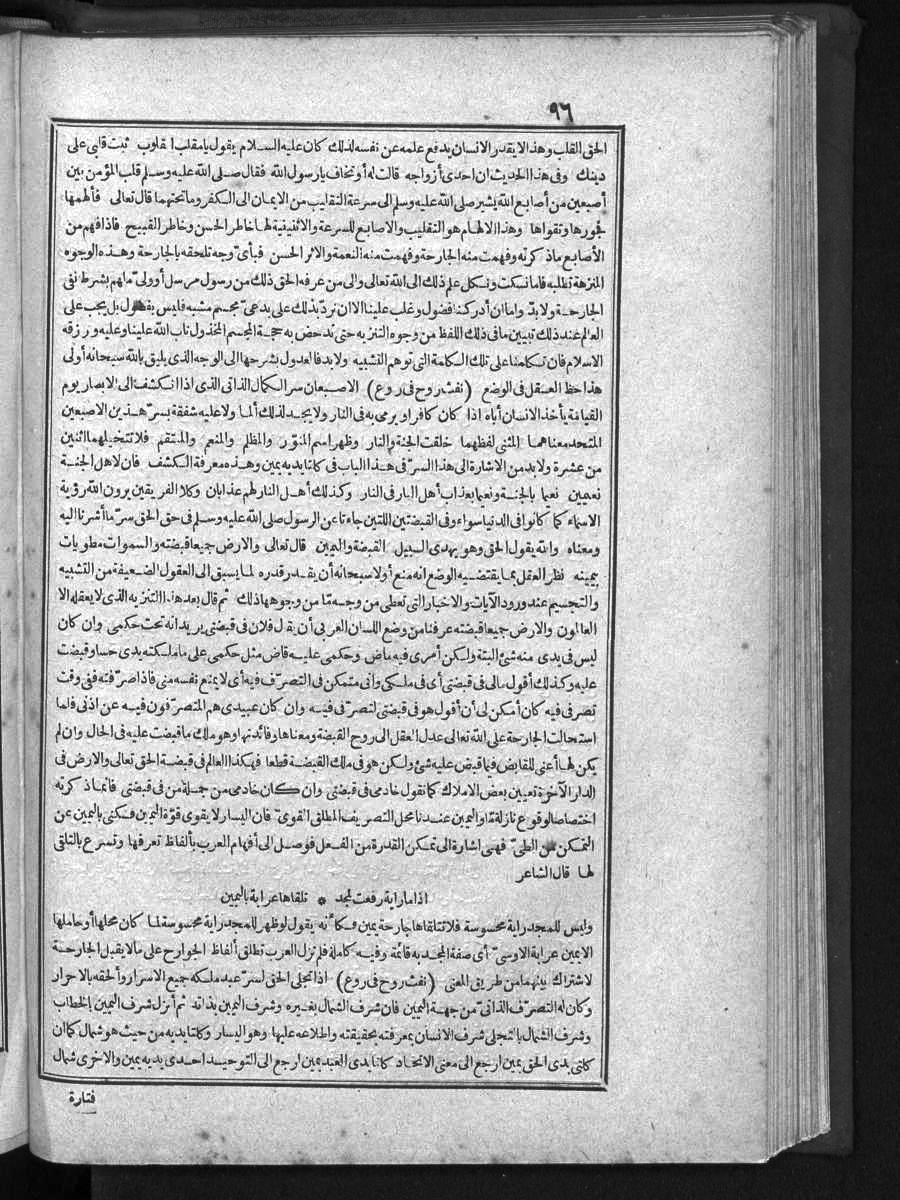 ٩٦
الحق القلب وهذا لا يقدر الانسان يدفع علمه عن نفسه لذلك كان عليه السلام يقول يا مقلب القلوب ثبت قلبي على
دينك وفي هذا الحديث ان احدى أزواجه قالت له أو تخاف يا رسول الله فقال صلى الله عليه وسلم قلب المؤمن بين
أصبعين من أصابع الله يشير صلى الله عليه وسلم الى سرعة التقليب من الايمان الى الكفر وما تحتهما قال تعالى فألهمها
فجورها وتقواها وهذا الالهام هو التقليب والاصابع للسرعة والاثنينية لها خاطر الحسن وخاطر القبيح فاذا فهم من
الأصابع ماذكرته وفهمت منه الجارحة وفهمت منه النعمة والاثر الحسن فبأى وجه تلحقه بالجارحة وهذه الوجوه
المنزهة تطلبه فاما نسكت ونكل علم ذلك الى الله تعالى والى من عرفه الحق ذلك من رسول مرسل أو ولى ملهم بشرط نفى
الجارحة ولا بد واما ان أدركنا فضول وغلب علينا الا ان نرد بذلك على بدعى مجسم مشبه فليس بفضول بل يجب على
العالم عند ذلك تبيين ما فى ذلك اللفظ من وجوه التنزيه حتى تدحض به حجة المجسم المخذول تاب الله علينا وعليه ورزقه
الاسلام فان تكلمنا على تلك الكلمة التى توهم التشبيه ولا بد فالعدول بشرحها الى الوجه الذى يليق بالله سبحانه أولى
هذا حظ العقل فى الوضع (نفث روح فى روع) الاصبعان سر الكمال الذاتى الذى اذا انكشف الى الابصار يوم
القيامة يأخذ الانسان أباه اذا كان كافرا ويرمى به فى النار ولا يجد لذلك ألما ولا عليه شفقة بسر هذين الاصبعين
المتحد معناهما المثنى لفظهما خلقت الجنة والنار وظهر اسم المنور والمظلم والمنعم والمنتقم فلا تتخيلهما اثنين
من عشرة ولا بد من الاشارة الى هذا السر فى هذا الباب فى كلتا يديه يمين وهذه معرفة الكشف فان لاهل الجنة
نعيمين نعيما بالجنة ونعيما بعذاب أهل النار فى النار وكذلك أهل النار لهم عذابان وكلا الفريقين يرون الله رؤية
الاسماء كما كانوا فى الدنيا سواء وفى القبضتين اللتين جاءتا عن الرسول صلى الله عليه وسلم فى حق الحق سر ما أشرنا اليه
ومعناه والله يقول الحق وهو يهدى السبيل القبضة واليمين قال تعالى والارض جميعا قبضته والسموات مطويات
بيمينه نظر العقل بما يقتضيه الوضع انه منع أولا سبحانه أن يقدر قدره لما يسبق الى العقول الضعيفة من التشبيه
والتجسيم عند ورود الآيات والاخبار التى تعطى من وجه ما من وجوهها ذلك ثم قال بعد هذا التنزيه الذى لا يعقله الا
العالمون والارض جميعا قبضته عرفنا من وضع اللسان العربى أن يقال فلان فى قبضتى يريد انه تحت حكمى وان كان
ليس فى يدى منه شئ البتة ولكن أمرى فيه ماض وحكمى عليه قاض مثل حكمى على ما ملكته يدى حسا وقبضت
عليه وكذلك أقول مالى فى قبضتى أى فى ملكى وانى متمكن فى التصرف فيه أى لا يمنع نفسه منى فاذا صرفته ففى وقت
تصرفى فيه كان أمكن لى أن أقول هو فى قبضتى لتصرفى فيه وان كان عبيدى هم المتصرفون فيه عن اذنى فلما
استحالت الجارحة على الله تعالى عدل العقل الى روح القبضة ومعناها وفائدتها وهو ملك ما قبضت عليه فى الحال وان لم
يكن لها أعنى للقابض فيما قبض عليه شئ ولكن هو فى ملك القبضة قطعا فهكذا العالم فى قبضة الحق تعالى والارض فى
الدار الآخرة تعيين بعض الاملاك كما نقول خادمى فى قبضتى وان كان خادمى من جملة من فى قبضتى فانما ذكرته
اختصاصا لوقوع نازلة ما واليمين عندنا محل التصريف المطلق القوى فان اليسار لا يقوى قوة اليمين فكنى باليمين عن
التمكن من الطى فهى اشارة الى تمكن القدرة من الفعل فوصل الى أفهام العرب بألفاظ تعرفها وتسرع بالتلقى
لها قال الشاعر
اذا ما راية رفعت لمجد * تلقاها عرابة باليمين
وليس للمجد راية محسوسة فلا تتلقاها جارحة يمين فكأنه يقول لو ظهر للمجد راية محسوسة لما كان محلها أو حاملها
الا يمين عرابة الاوسى أى صفة المجد به قائمة وفيه كاملة فلم تزل العرب تطلق ألفاظ الجوارح على ما لا يقبل الجارحة
لاشتراك بينهما من طريق المعنى (نفث روح فى روع) اذا تجلى الحق لسر عبد ملكه جميع الاسرار وألحقه بالاحرار
وكان له التصرف الذاتى من جهة اليمين فان شرف الشمال بغيره وشرف اليمين بذاته ثم أنزل شرف اليمين بالخطاب
وشرف الشمال بالتجلى شرف الانسان بمعرفته بحقيقته واطلاعه عليها وهو اليسار وكلتا يديه من حيث هو شمال كما ان
كلتى يدى الحق يمين ارجع الى معنى الاتحاد كلتا يدى العبد يمين ارجع الى التوحيد احدى يديه يمين والاخرى شمال
فتارة